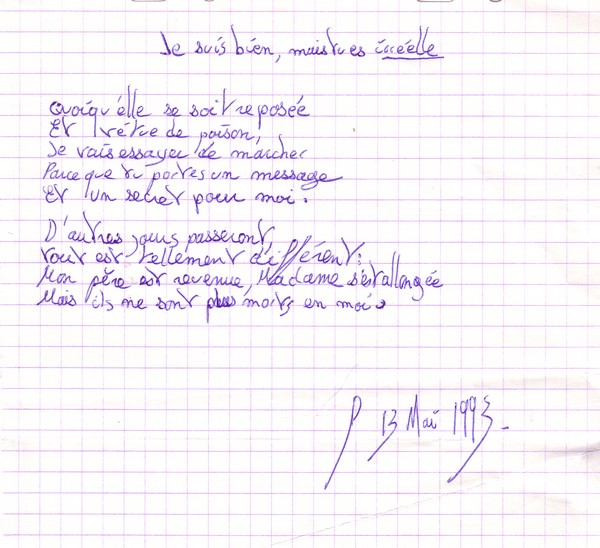 Je suis bien, mais tu es irréelle
Quoiqu'elle se soit reposée
Et vêtue de poison,
Je vais essayer de marcher
Parce que tu portes un message
Et un secret pour moi.
D'autres jours passeront,
tout est tellement différent:
Mon père est revenue, Madame s'est allongée
Mais ils ne sont plus morts en moi.
P 13 Mai 1993.